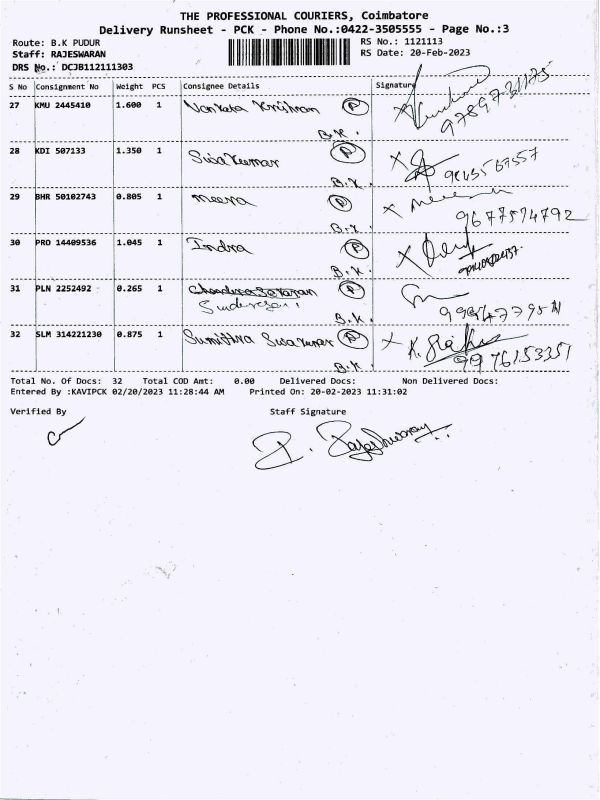 THE PROFESSIONAL COURIERS, Coimbatore
Delivery Runsheet - PCK - Phone No.:0422-3505555 - Page No.:3
Route: B.K PUDUR RS No.: 1121113
Staff: RAJESWARAN RS Date: 20-Feb-2023
DRS No.: DCJB112111303
S No Consignment No Weight PCS Consignee Details Signature
27 KMU 2445410 1.600 1 Venkata Krishnan P 9789731175
B.K.
28 KDI 507133 1.350 1 Sivakumar P
B.K.
29 BHR 50102743 0.805 1 meera P 9677594792
B.K.
30 PRO 14409536 1.045 1 Indra P
B.K.
31 PLN 2252492 0.265 1 P
B.K.
32 SLM 314221230 0.875 1 Sumithra Sivakumar P 9976153351
B.K.
Total No. Of Docs: 32 Total COD Amt: 0.00 Delivered Docs: Non Delivered Docs:
Entered By :KAVIPCK 02/20/2023 11:28:44 AM Printed On: 20-02-2023 11:31:02
Verified By Staff Signature